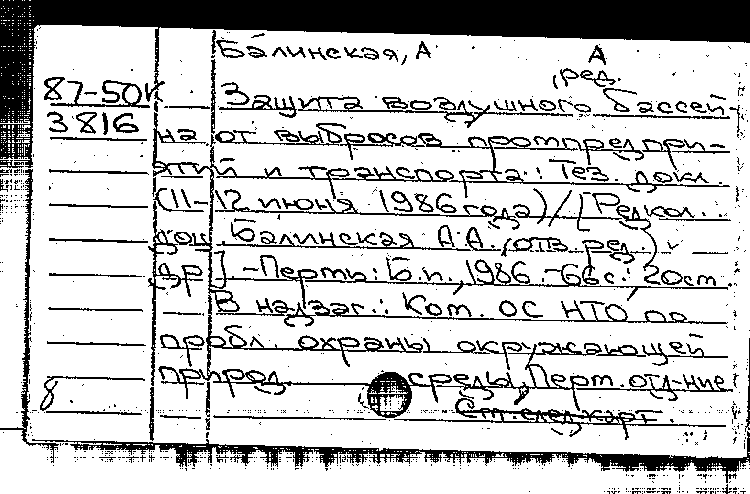 Балинская, А А
, ред.
87-50К Защита воздушного бассей-
3816 на от выбросов промпредпри-
ятий и транспорта: Тез. докл.
(11-12 июня 1986 года) / [Редкол.:
доц. Балинская А.А. (отв. ред.)
др]. - Пермь: Б.и., 1986. - 66 с.; 20 см.
В надзаг.: Ком. ОС НТО по
пробл. охраны окружающей
природ. среды, Перм. отд-ние
8. См. след. карт.